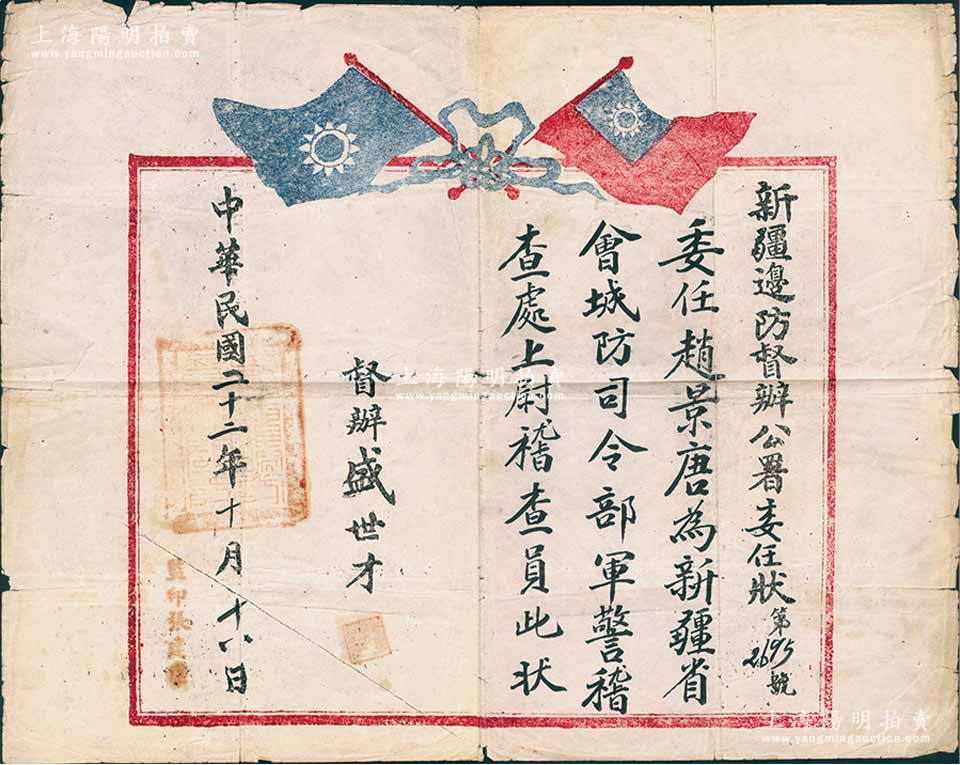 新疆邊防督辦公署委任狀第2695號
委任趙景唐為新疆省
會城防司令部軍警稽
查處上尉稽查員此狀
督辦盛世才
中華民國二十二年十月十八日
監印張
上海陽明拍賣
www.yangmingauction.com
上海陽明拍賣
www.yangmingauction.com
上海陽明拍賣
www.yangmingauction.com